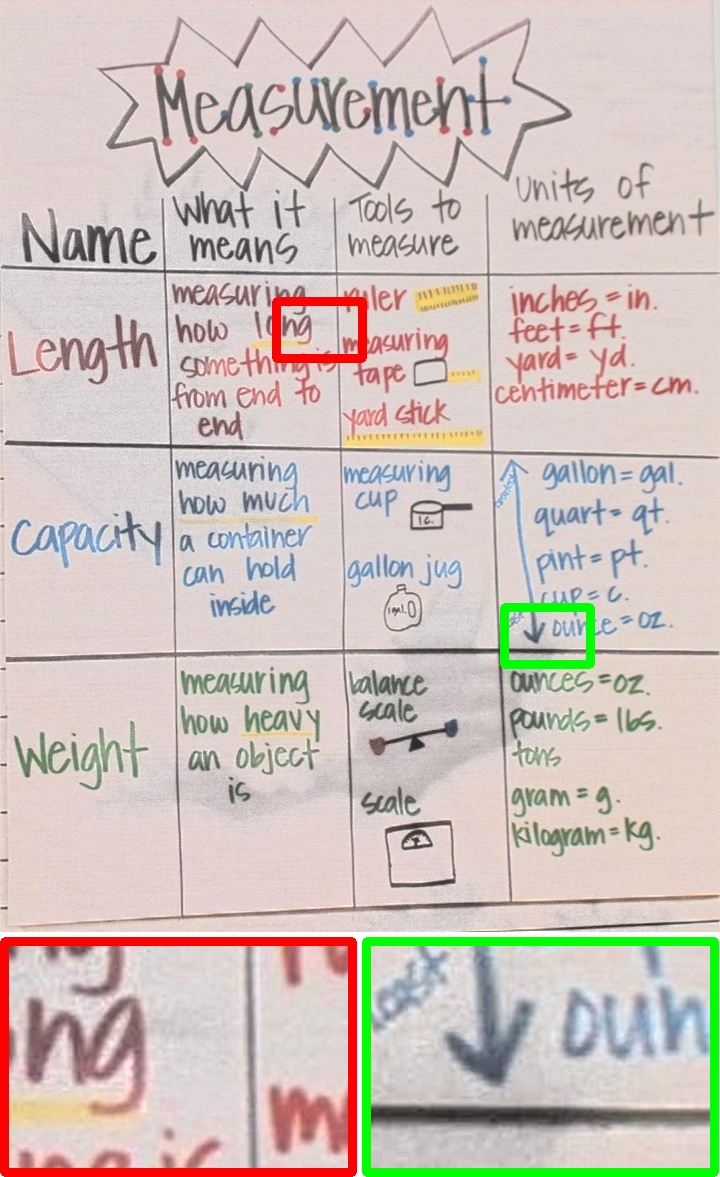 Measurement
Name
What it
means
Tools to
measure
Units of
measurement
Length
measuring
how long
something is
from end to
end
ruler
measuring
tape
yard stick
inches = in.
feet = ft.
yard = yd.
centimeter = cm.
Capacity
measuring
how much
a container
can hold
inside
measuring
cup
1c.
gallon jug
1gal.
gallon = gal.
quart = qt.
pint = pt.
cup = c.
ounce = oz.
Weight
measuring
how heavy
an object
is
balance
scale
scale
ounces = oz.
pounds = lbs.
tons
gram = g.
kilogram = kg.